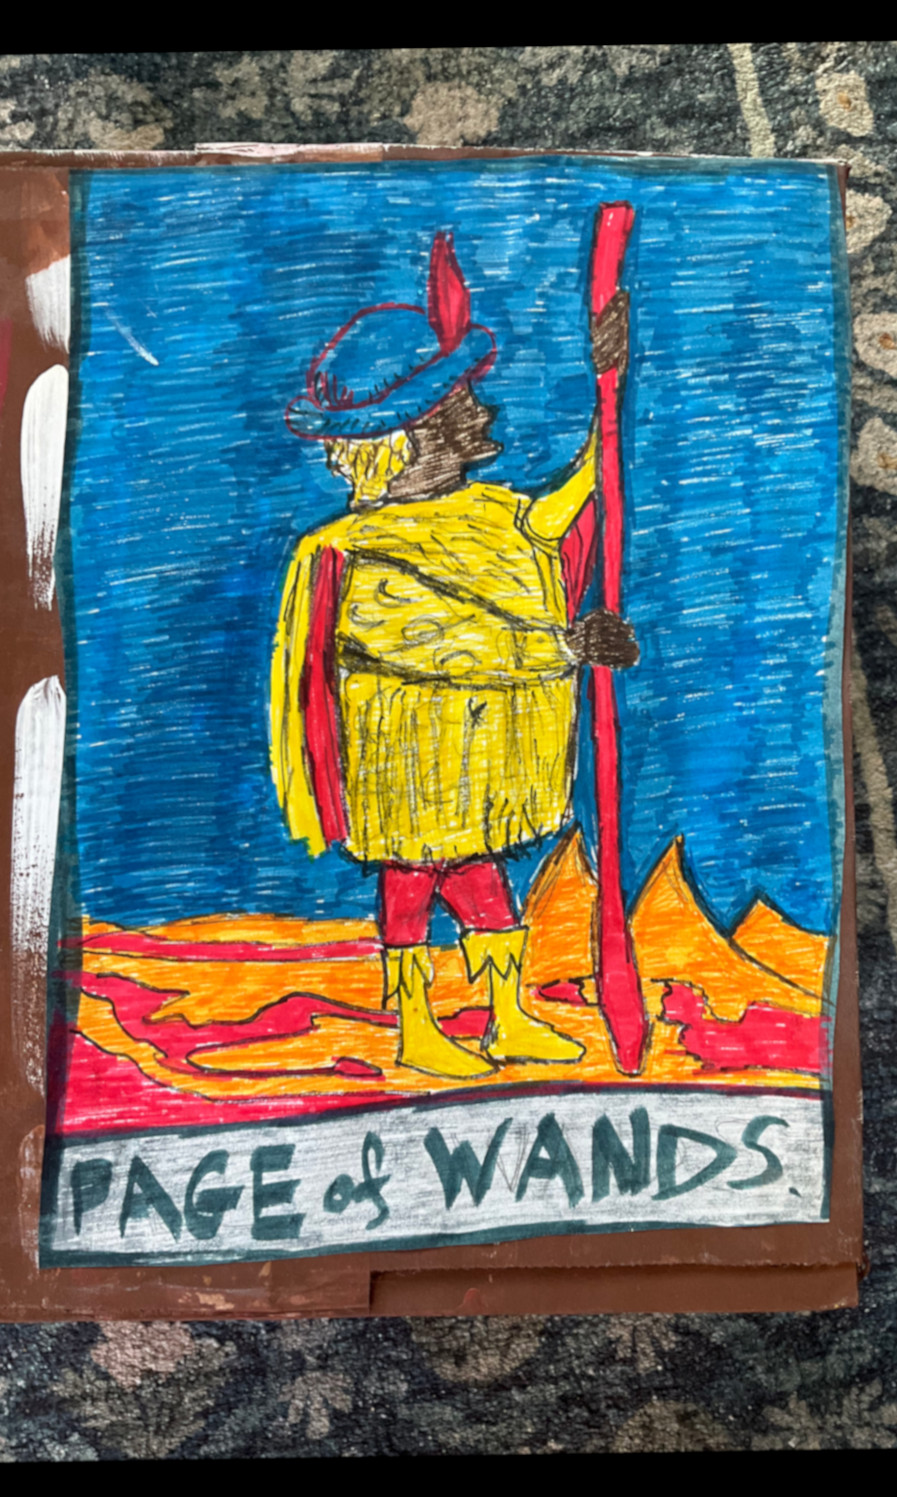 PAGE of WANDS.